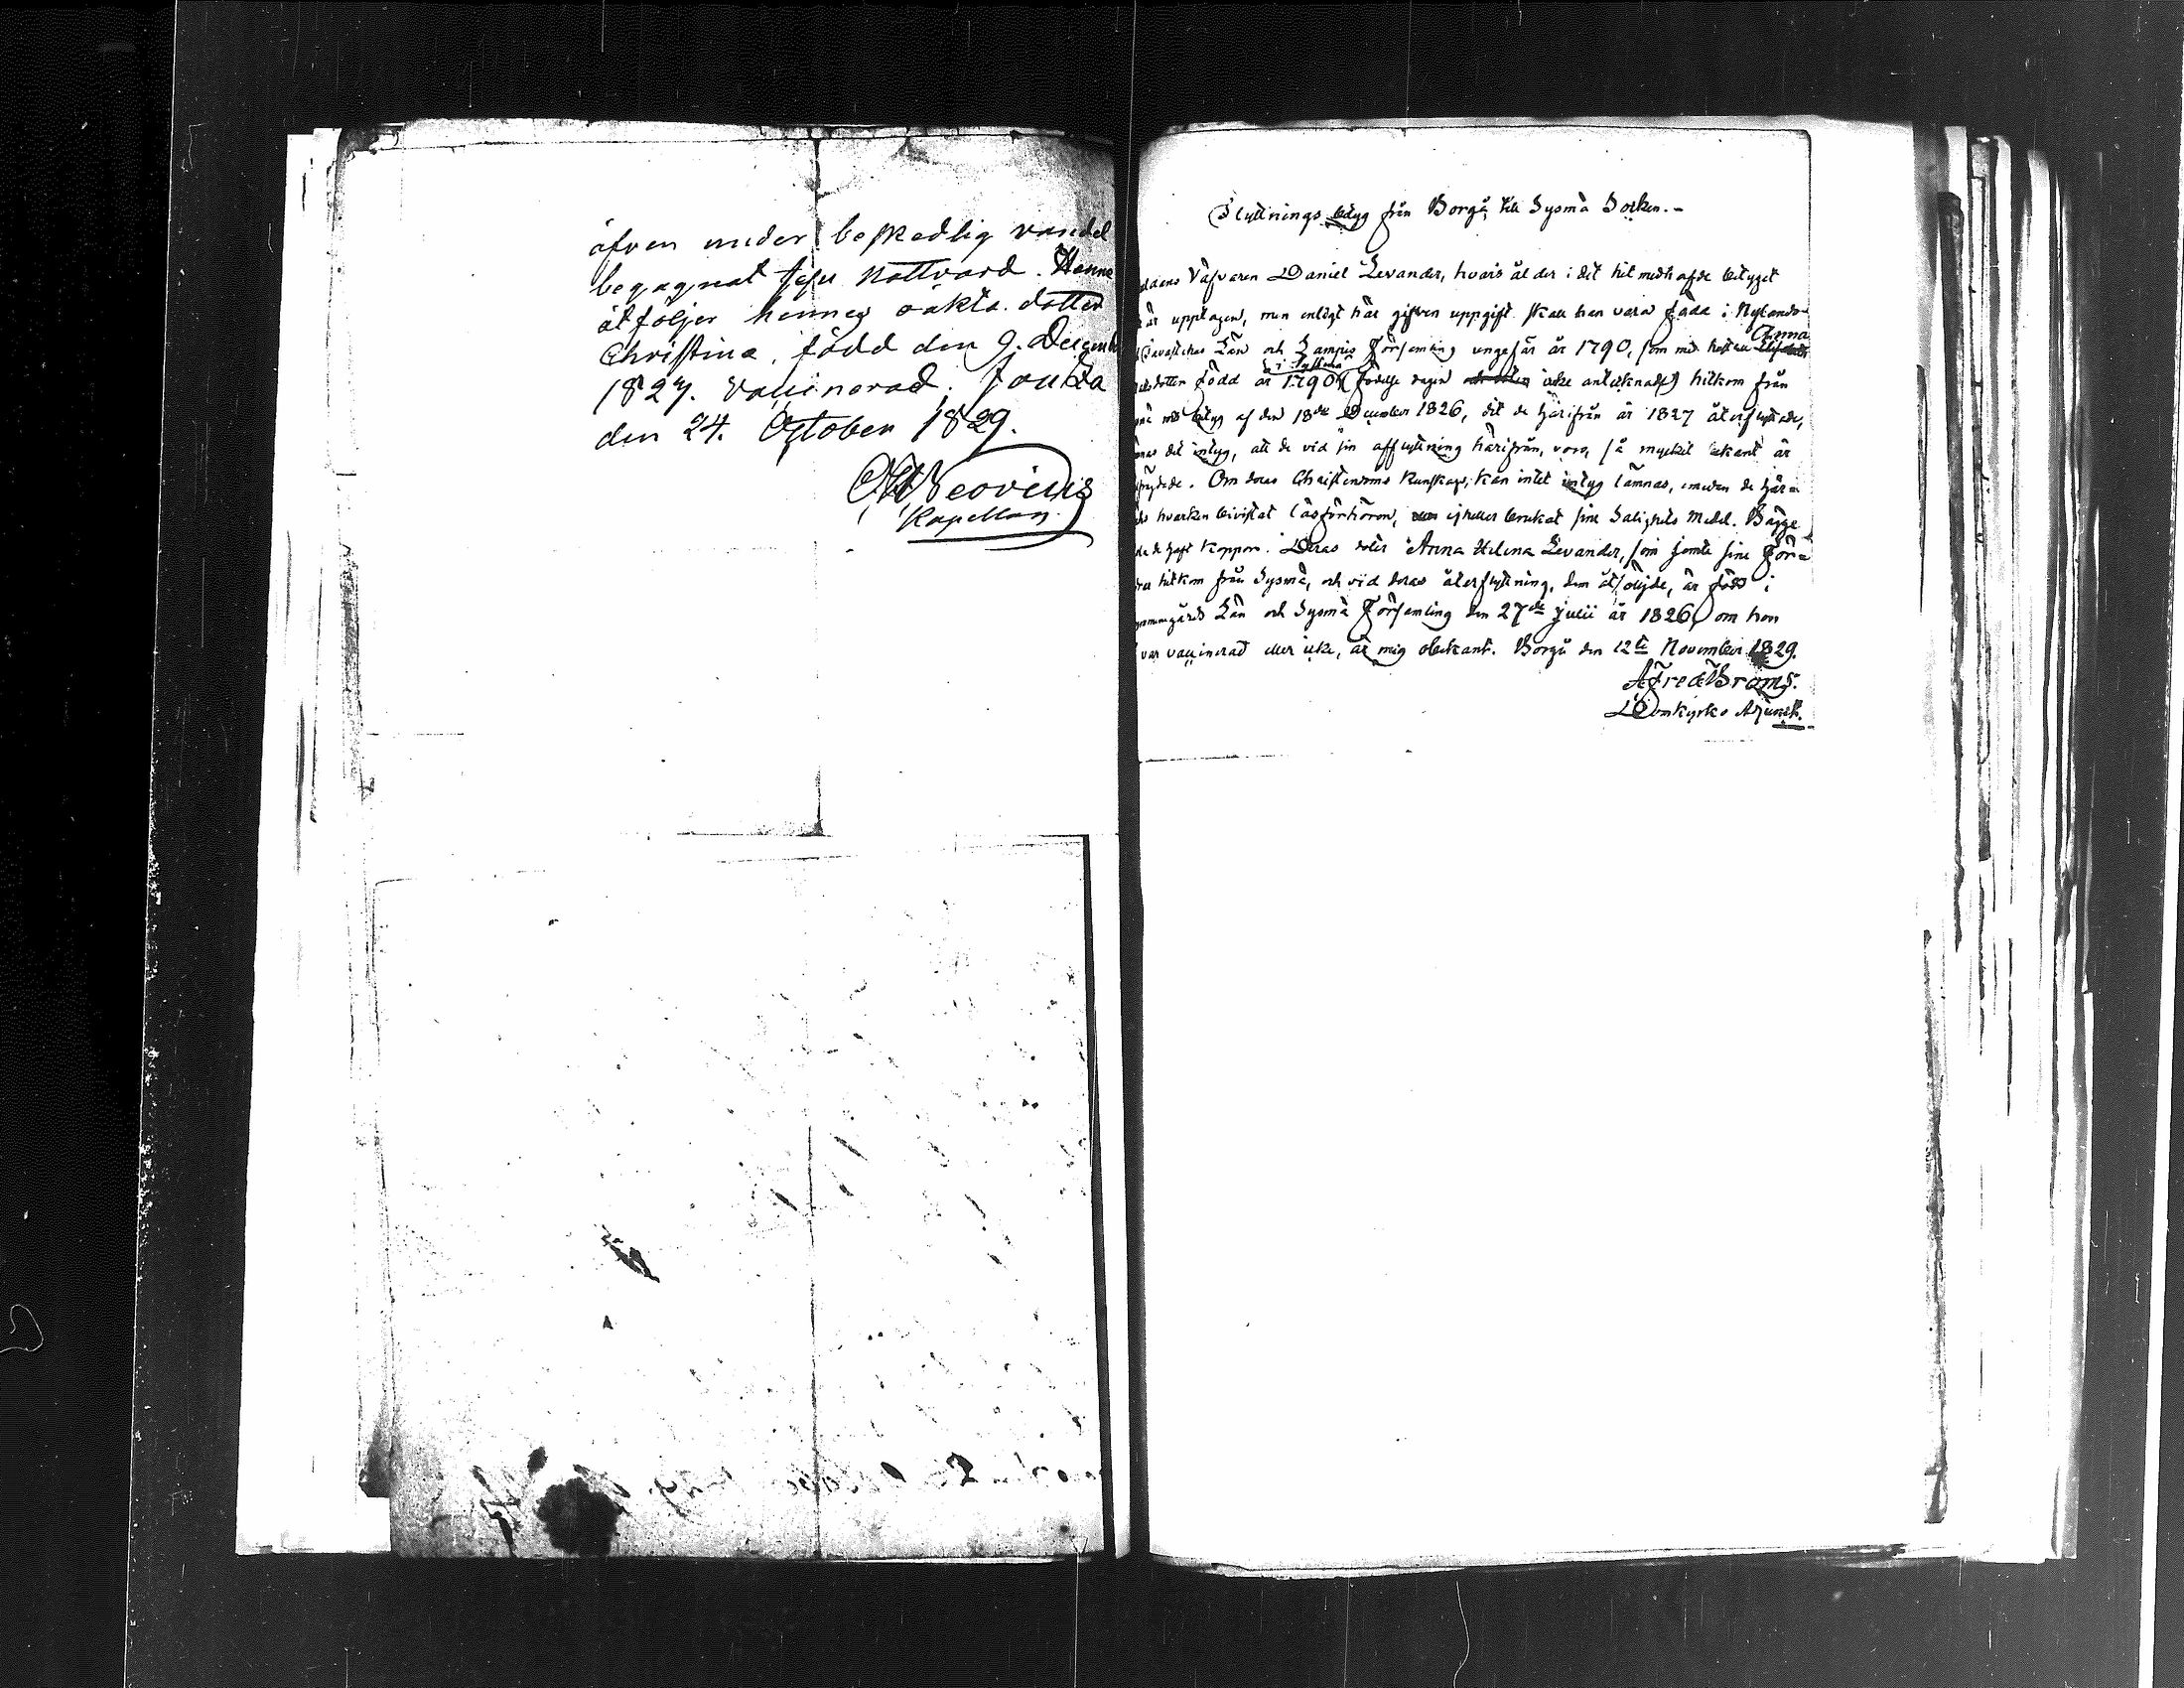 äfven under beskedlig vandel
begagnat Jesu Nattvard. Henne
åtföljer hennes oäkta dotter
Christina, född den 9. Decemb
1827. vaccinerad. Joutsa
den 24. October 1829.
Kapellan.
Flyttnings betyg från Borgå till Sysmä Socken.-
Väfvaren Daniel Levander, hvars ålder i det hit medhafde betyget
är upptagen, men enligt här gifven uppgift skall han vara född i Nylands
Anna
Tavastehus Län och Lampis Församling ungefär år 1790, som med hustrun
dotter född år 1790 (födelse dagen icke antecknad) hitkom från
med betyg af den 18de December 1826, dit de härifrån år 1827 återflyttade,
det intyg, att de vid sin afflyttning härifrån, voro, så mycket bekant är
Om deras Christendoms Kunskap, kan intet intyg lämnas, emedan de här-
hvarken bivistat läsförhören, ej heller brukat sine Salighets Medel. Bägge
haft koppor. Deras dotter Anna Helena Levander, som jemte sine För-
hitkom från Sysmä, och vid deras återflyttning, dem åtföljde, är född i
Län och Sysmä Församling den 27de Julii år 1826, om hon
var vaccinerad eller icke, är mig obekant. Borgå den 12te November 1829.
Alfred Brams.
Domkyrko Adjunct.